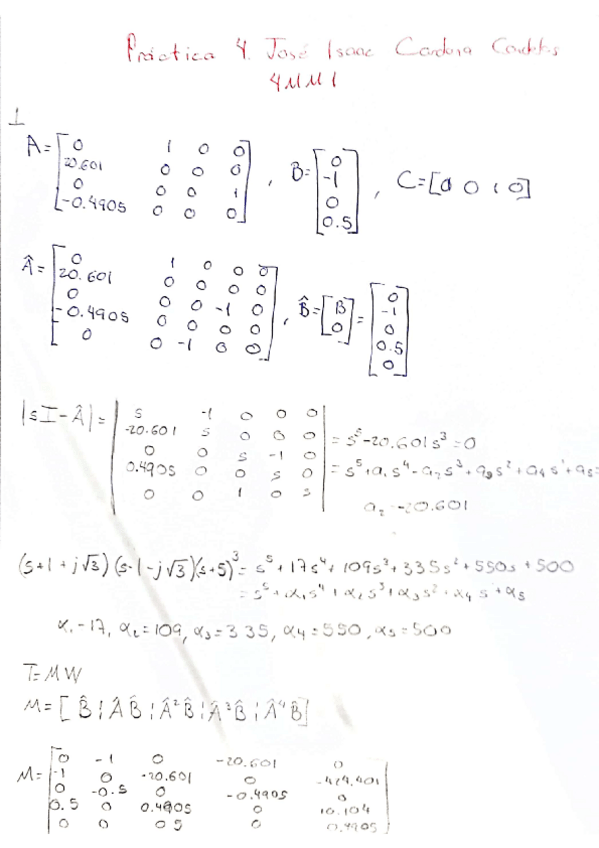 Práctica 4. José Isaac
4MM1
I
A = [0 1 0 0
20.601 0 0 0
0 0 0 1
-0.4905 0 0 0] , B = [0
-1
0
0.5] , C = [0 0 1 0]
Â = [0 1 0 0 0
20.601 0 0 0 0
0 0 0 -1 0
-0.4905 0 0 0 0
0 0 -1 0 0] , B̂ = [B
0] = [0
-1
0
0.5
0]
|sI - Â| = |s -1 0 0 0
-20.601 s 0 0 0
0 0 s -1 0
0.4905 0 0 s 0
0 0 1 0 s| = s⁵ - 20.601s³ = 0
= s⁵ + a₁s⁴ - a₂s³ + a₃s² + a₄s + a₅ =
a₂ = -20.601
(s+1+j√3)(s-1-j√3)(s+5)³ = s⁵ + 17s⁴ + 109s³ + 335s² + 550s + 500
= s⁵ + α₁s⁴ + α₂s³ + α₃s² + α₄s + α₅
α₁ - 17, α₂ = 109, α₃ = 335, α₄ = 550, α₅ = 500
T = MW
M = [B̂ ¦ ÂB̂ ¦ Â²B̂ ¦ Â³B̂ ¦ Â⁴B̂]
M = [0 -1 0 -20.601 0
-1 0 -20.601 0 -424.401
0 -0.5 0 -0.4905 0
0.5 0 0.4905 0 10.104
0 0 05 0 0.4905]